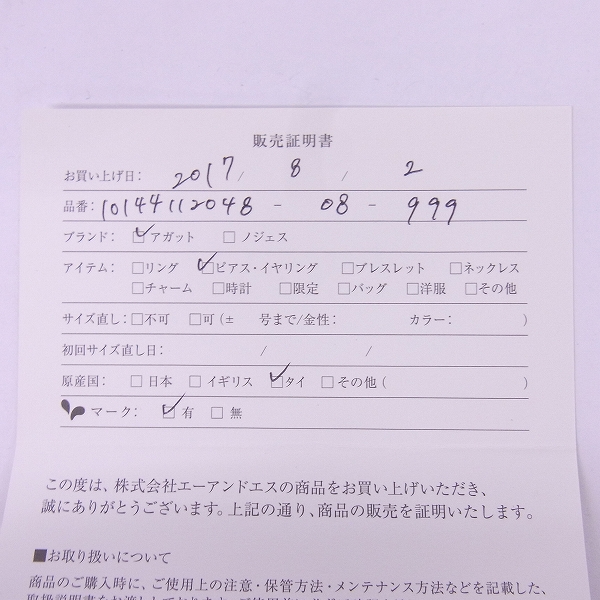 販売証明書
お買い上げ日： 2017 / 8 / 2
品番： 10144112048 - 08 - 999
ブランド： ☑ アガット □ ノジェス
アイテム： □リング ☑ピアス・イヤリング □ブレスレット □ネックレス
□チャーム □時計 □限定 □バッグ □洋服 □その他
サイズ直し：□不可 □可（± 号まで/金性： カラー： ）
初回サイズ直し日： / /
原産国： □ 日本 □ イギリス ☑タイ □ その他（ ）
マーク： ☑ 有 □ 無
この度は、株式会社エーアンドエスの商品をお買い上げいただき、
誠にありがとうございます。上記の通り、商品の販売を証明いたします。
■お取り扱いについて
商品のご購入時に、ご使用上の注意・保管方法・メンテナンス方法などを記載した、